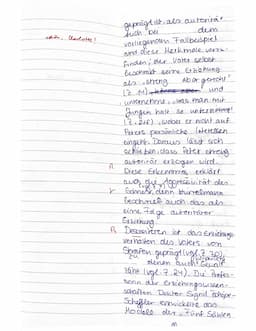 geprägt ist als autoritär
Auch bei dem
vorliegenden Fallbeispiel
sind diese Merkmale vorzu-
finden; der Vater selbst
beschreibt seine Erziehung
als „streng aber gerecht"
und
unternehme „was man mit
Jungen halt so unternimmt"
, wobei er nicht auf
Peters persönliche Interessen
eingeht. Daraus lässt sich
schließen, dass Peter streng
autoritär erzogen wird.
Diese Erkenntnis erklärt
auch die Aggressivität des
denn
beschreibt auch das als
eine Folge autoritärer
Erziehung
Desweiteren ist das Erziehungs-
verhalten des Vaters von
Strafen geprägt (vgl. Z. 30),
zu denen auch
(vgl. Z. 24). Die Profes-
sorin der Erziehungswissen-
schaften Doktor Sigrid Tschöpe-
Scheffler entwickelte das
Modell der „Fünf Säulen